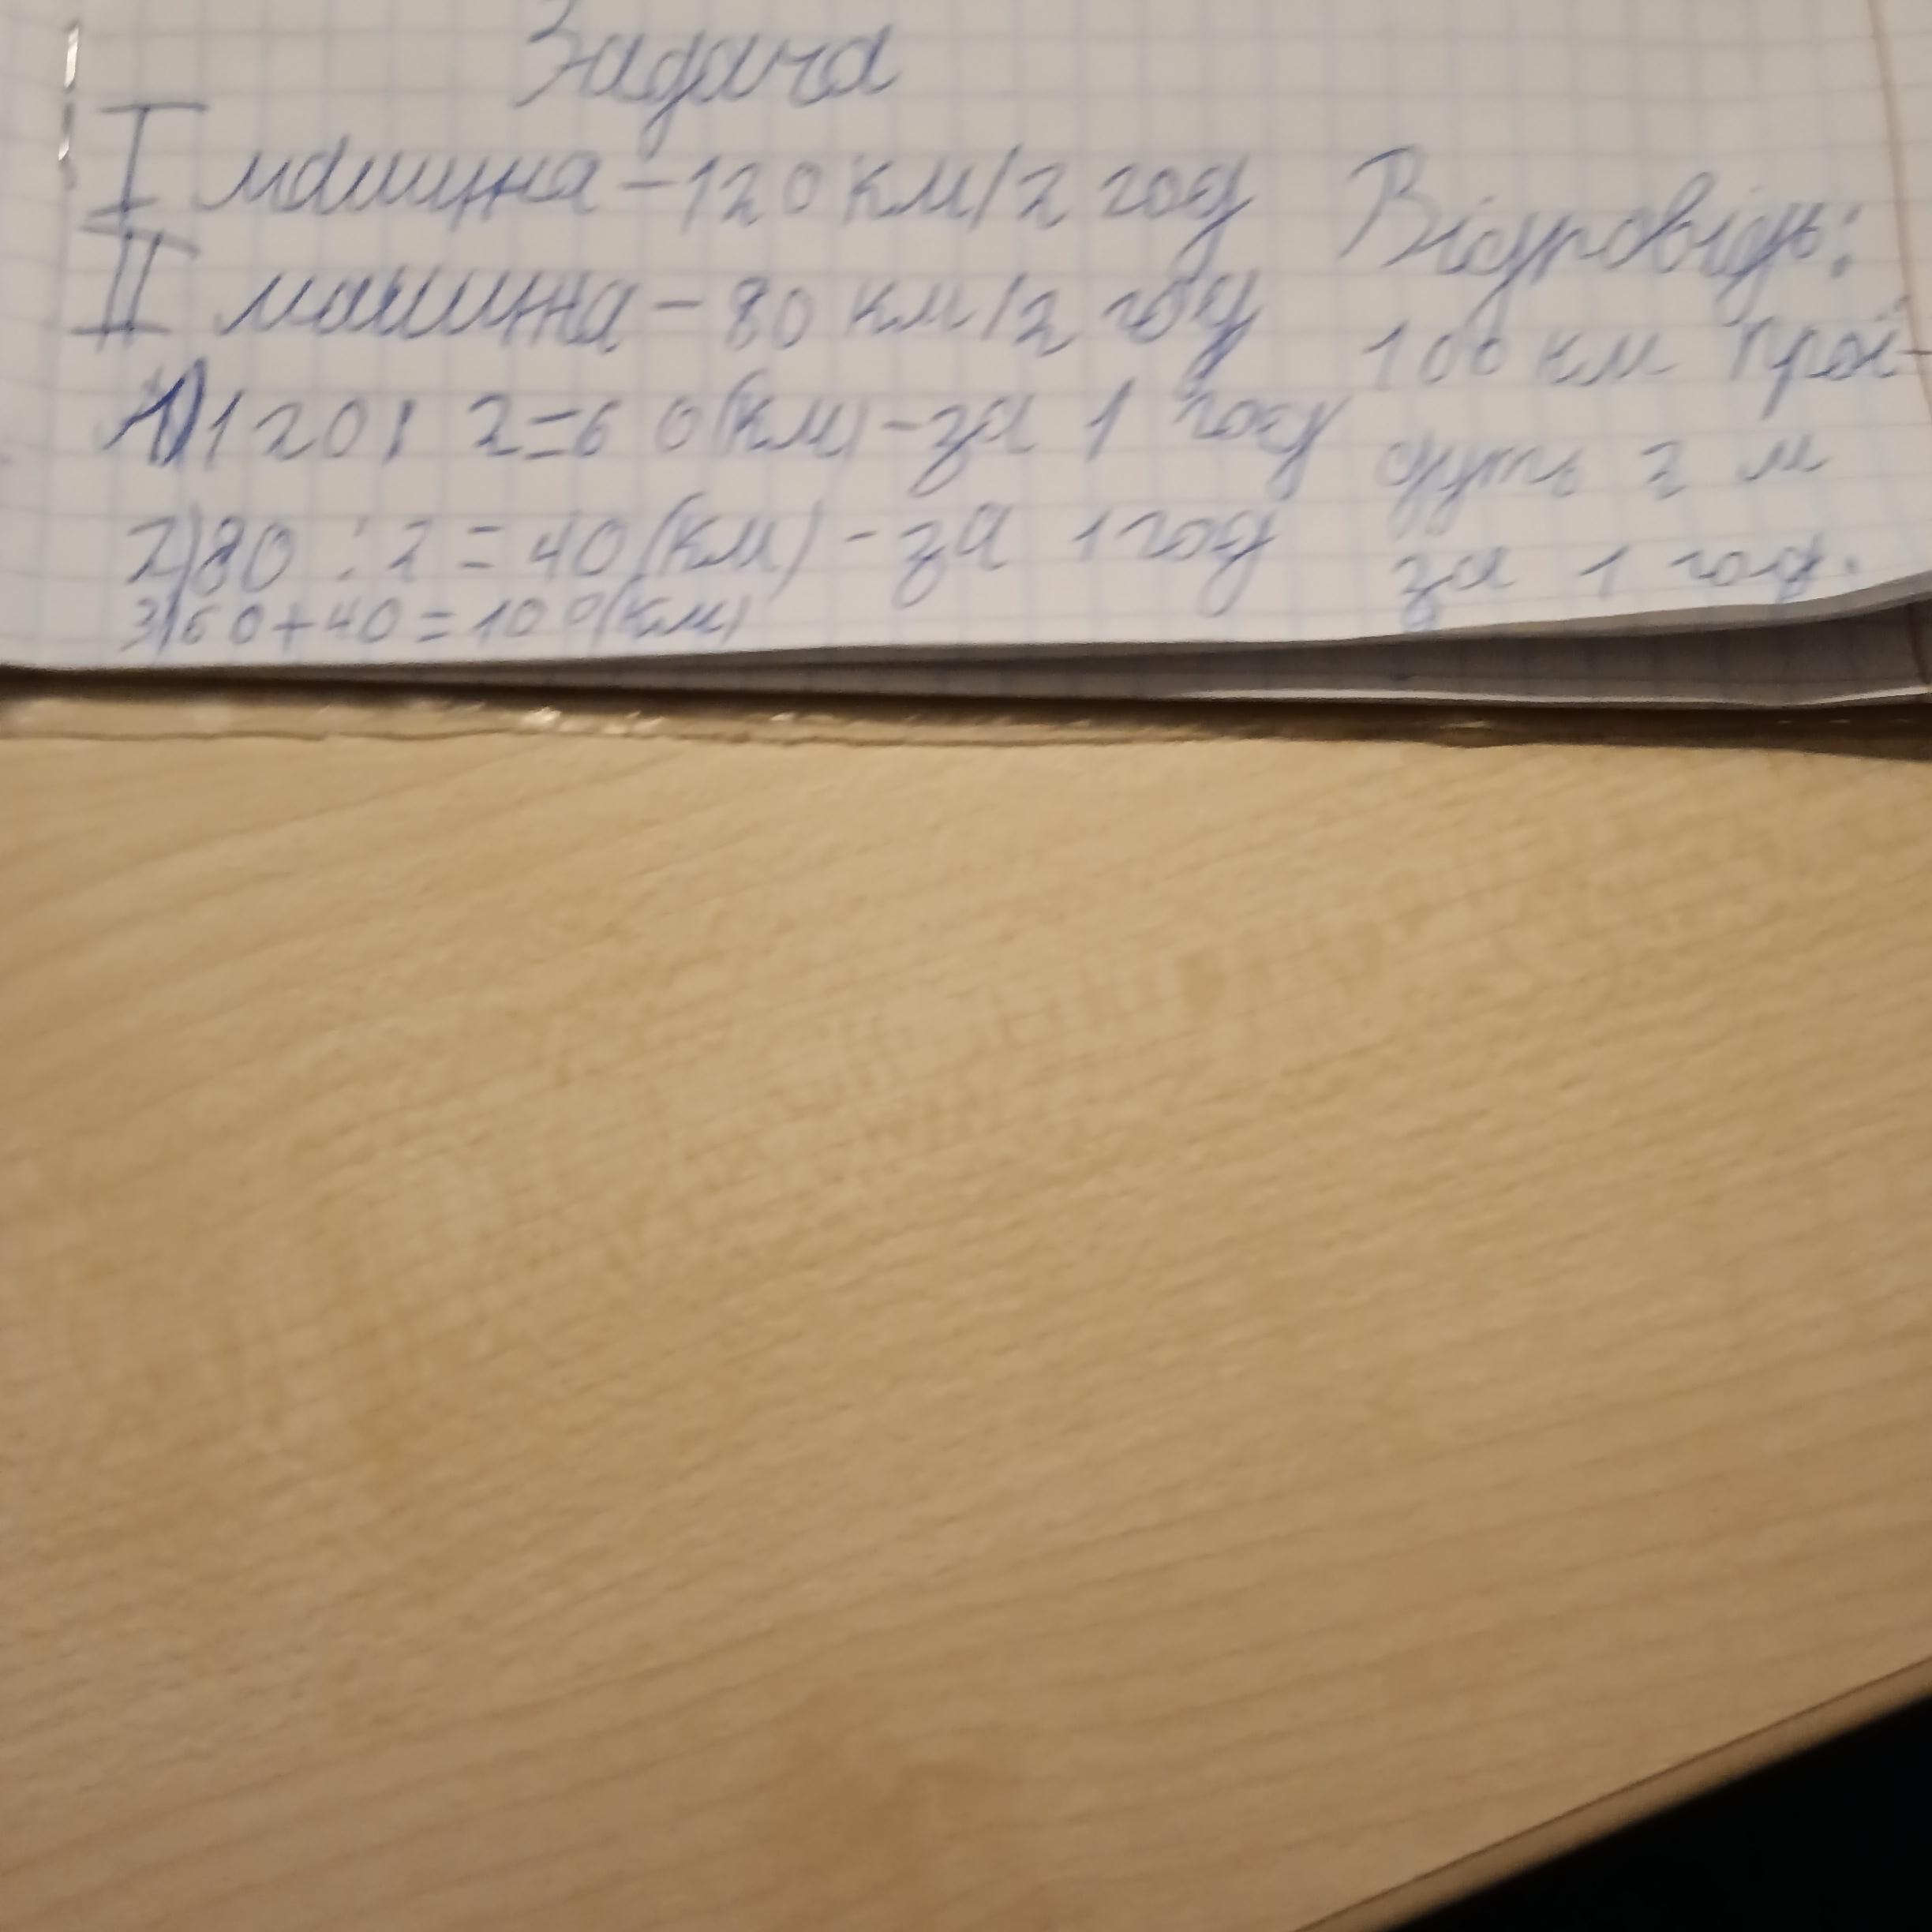 Задача
I машина - 120 км/2 год
II машина - 80 км/2 год
1) 120 : 2 = 60 (км) - за 1 год
2) 80 : 2 = 40 (км) - за 1 год
3) 60 + 40 = 100 (км)
Відповідь:
100 км прой-
дуть 2 м
за 1 год.